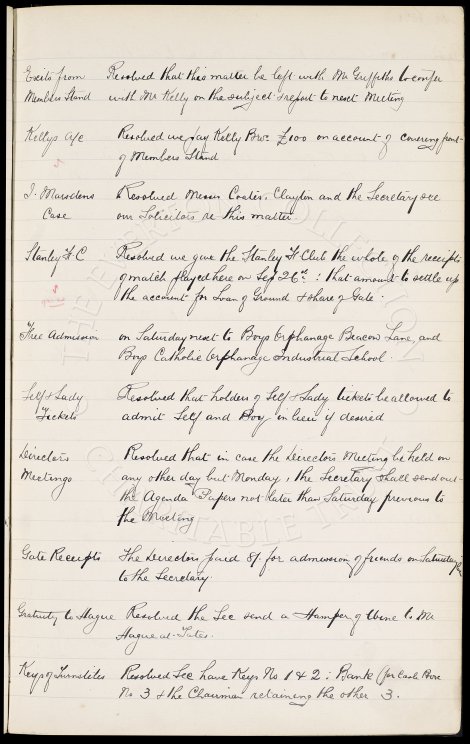 Exits from Resolved that this matter be left with Mr Griffiths to confer
Members Stand with Mr Kelly on the subject & report to next Meeting
Kellys a/c Resolved we pay Kelly Bros £100 on account of covering front
of Members Stand
I. Marsdens Resolved Messrs Coates, Clayton and the Secretary see
Case our Solicitors re this matter.
Stanley F C Resolved we give the Stanley F Club the whole of the receipts
of match played here on Sep 26th : that amount to settle up
the account for Loan of Ground & share of Gate.
Free Admission on Saturday next to Boys Orphanage Beacon Lane, and
Boys Catholic Orphanage Industrial School.
Self & Lady Resolved that holders of Self & Lady tickets be allowed to
Tickets admit Self and Boy in lieu if desired
Directors Resolved that in case the Directors Meeting be held on
Meetings any other day but Monday, the Secretary shall send out
the Agenda Papers not later than Saturday previous to
the Meeting
Gate Receipts The Directors paid 8/- for admission of friends on Saturday
to the Secretary.
Gratuity to Hague Resolved the Sec send a Hamper of Wine to Mr
Hague
Keys of Turnstiles Resolved Sec have Keys No 1 & 2 : Bank (for Cash Box
No 3 & the Chairman retaining the other 3.
THE EVERTON COLLECTION
CHARITABLE TRUST